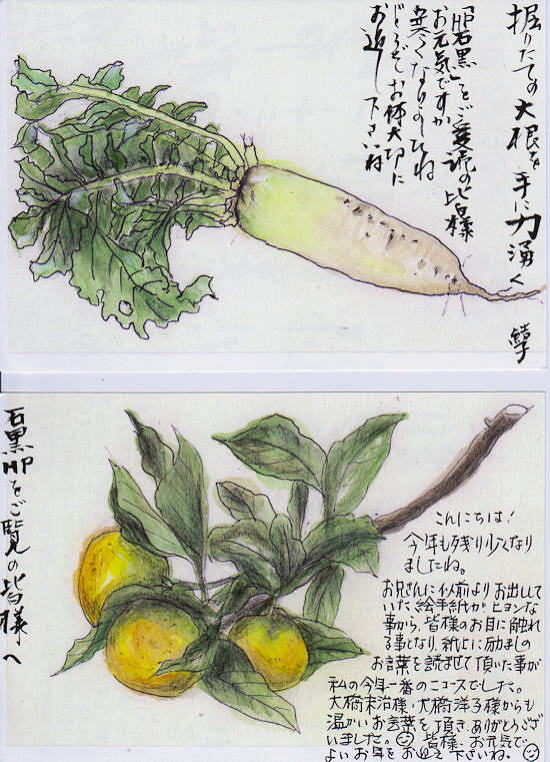 掘りたての大根を手に力湧く
『HP石黒』をご愛読の皆様
お元気ですか
寒くなりましたね
どうぞお体大切に
お過し下さいね
石黒HPをご覧の皆様へ
こんにちは!
今年も残り少くなり
ましたね。
お兄さんに以前よりお出しして
いた絵手紙が、ヒョンな
事から、皆様のお目に触れ
る事となり、紙上に励ましの
お言葉を読ませて頂いた事が
私の今年一番のニュースでした。
大橋末治様・大橋洋子様からも
温かいお言葉を頂き、ありがとうござ
いました。皆様、お元気で
よいお年をお迎え下さいね。